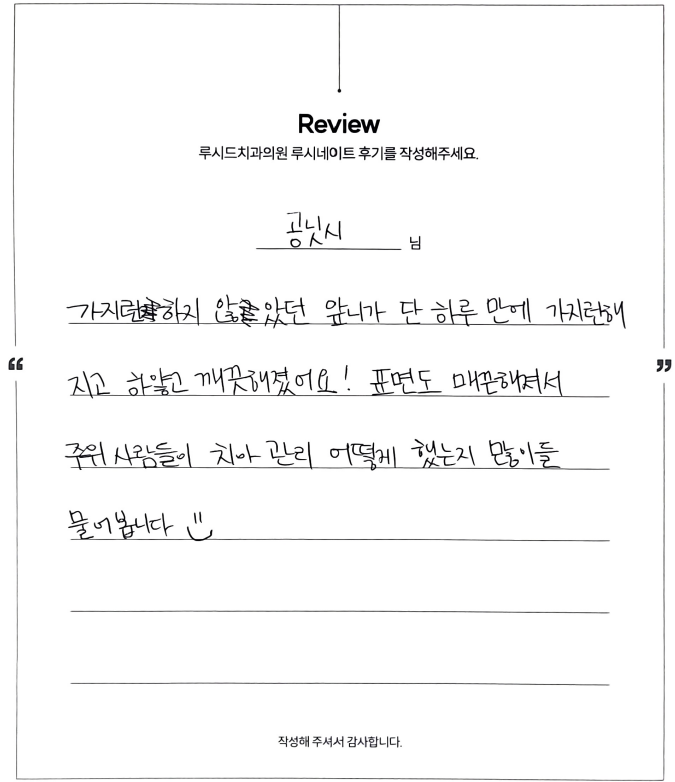 Review
루시드치과의원 루시네이트 후기를 작성해주세요.
공닛시 님
가지런하지 않았던 앞니가 단 하루 만에 가지런해
“ ”
지고 하얗고 깨끗해졌어요! 표면도 매끈해져서
주위 사람들이 치아 관리 어떻게 했는지 많이들
물어봅니다 :)
작성해 주셔서 감사합니다.